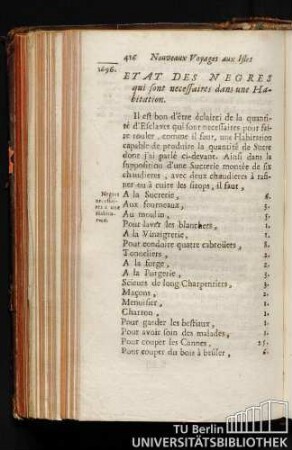 416 Nouveaux Voyages aux Isles
1696.
ETAT DES NEGRES
qui sont necessaires dans une Ha-
bitation.
Il est bon d'être éclairci de la quanti-
té d'Esclaves qui sont necessaires pour fai-
re rouler, comme il faut, une Habitation
capable de produire la quantité de Sucre
dont j'ai parlé ci-devant. Ainsi dans la
supposition d'une Sucrerie montée de six
chaudieres, avec deux chaudieres à raf-
finer ou à cuire les sirops, il faut,
Negres
A la Sucrerie, 6.
Aux fourneaux, 3.
Au moulin, 5.
Pour laver les blanchets, 1.
A la Vinaigrerie, 1.
Pour conduire quatre cabroüets, 8.
Tonneliers, 2.
A la forge, 2.
A la Purgerie, 3.
Scieurs de long Charpentiers, 3.
Maçons, 2.
Menuisier, 1.
Charron, 1.
Pour garder les bestiaux, 1.
Pour avoir soin des malades, 1.
Pour couper les Cannes, 25.
Pour couper du bois à brûler, 6.
TU Berlin
UNIVERSITÄTSBIBLIOTHEK